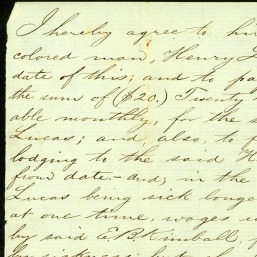 I hereby agree to hi
colored man, Henry
date of this; and to pa
the sum of ($20.) Twenty
able monthly, for the s
Lucas; and also, to f
lodging to the said H
from date - and; in the
Lucas being sick longe
at one time, wages
by said E. P. Kimball,
by sickness;